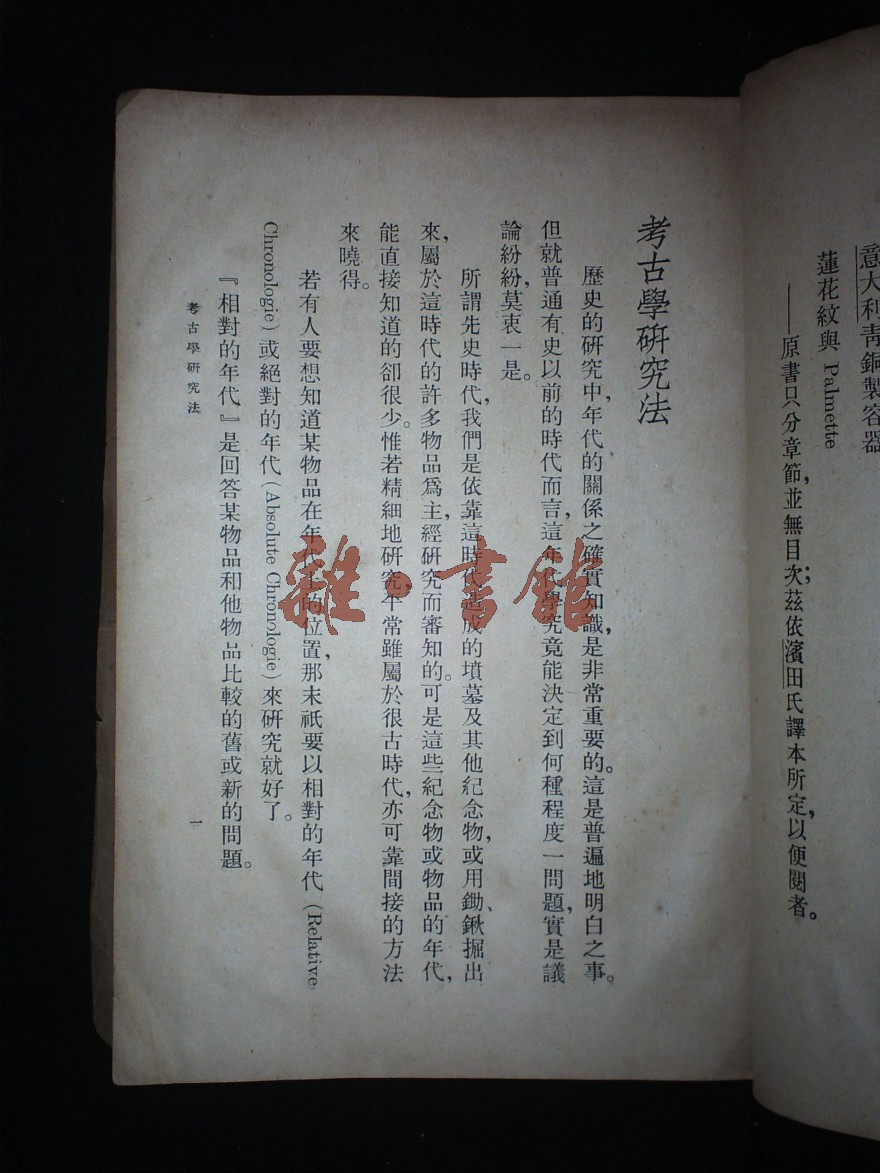 意大利靑銅製容器
蓮花紋與 Palmette
——原書只分章節，並無目次；茲依濱田氏譯本所定，以便閱者。
考古學硏究法
歷史的硏究中，年代的關係之確實知識，是非常重要的。這是普遍地明白之事。
但就普通有史以前的時代而言，這年代學究竟能決定到何種程度一問題，實是議
論紛紛，莫衷一是。
所謂先史時代，我們是依靠這時代造成的墳墓及其他紀念物，或用鋤、鍬掘出
來，屬於這時代的許多物品爲主，經硏究而審知的。可是這些紀念物或物品的年代，
能直接知道的卻很少。惟若精細地硏究，平常雖屬於很古時代，亦可靠間接的方法
來曉得。
若有人要想知道某物品在年代上的位置，那末祇要以相對的年代 (Relative
Chronologie) 或絕對的年代 (Absolute Chronologie) 來硏究就好了。
『相對的年代』是回答某物品和他物品比較的舊或新的問題。
考古學硏究法
一
雜·書館